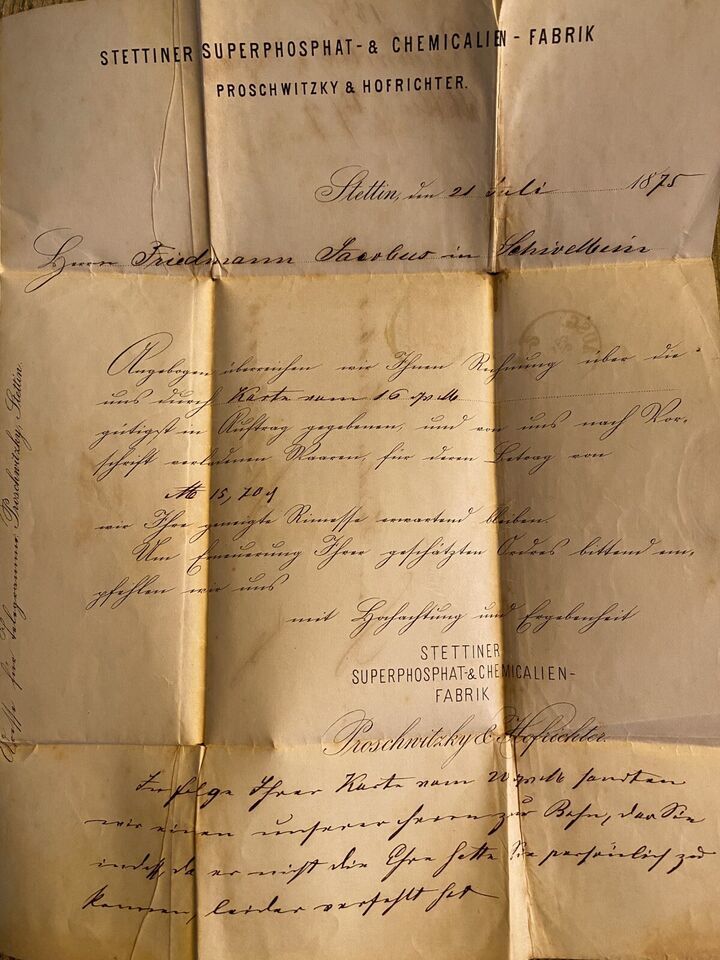 STETTINER SUPERPHOSPHAT- & CHEMICALIEN - FABRIK
PROSCHWITZKY & HOFRICHTER.
Stettin, den 21 Juli 1875
Herrn Friedmann Jacobus in Schivelbein
Angebogen überreichen wir Ihnen Rechnung über die
uns durch Karte vom 16
gütigst in Auftrag gegebenen, und von uns nach Vor-
schrift verladenen Waaren, für deren Betrag von
M 15,70
wir Ihre geneigte Rimesse erwartend bleiben.
Um Erneuerung Ihrer geschätzten Ordres bittend em-
pfehlen wir uns
mit Hochachtung und Ergebenheit
STETTINER
SUPERPHOSPHAT-& CHEMICALIEN-
FABRIK
Proschwitzky & Hofrichter.
In folge Ihrer Karte vom 20 sandten
wir einen unserer Herrn zur Bahn, der Sie
indeß, da er nicht die Ehre hatte Sie persönlich zu
kennen, leider verfehlt hat
Adresse für Telegramme: Proschwitzky, Stettin.